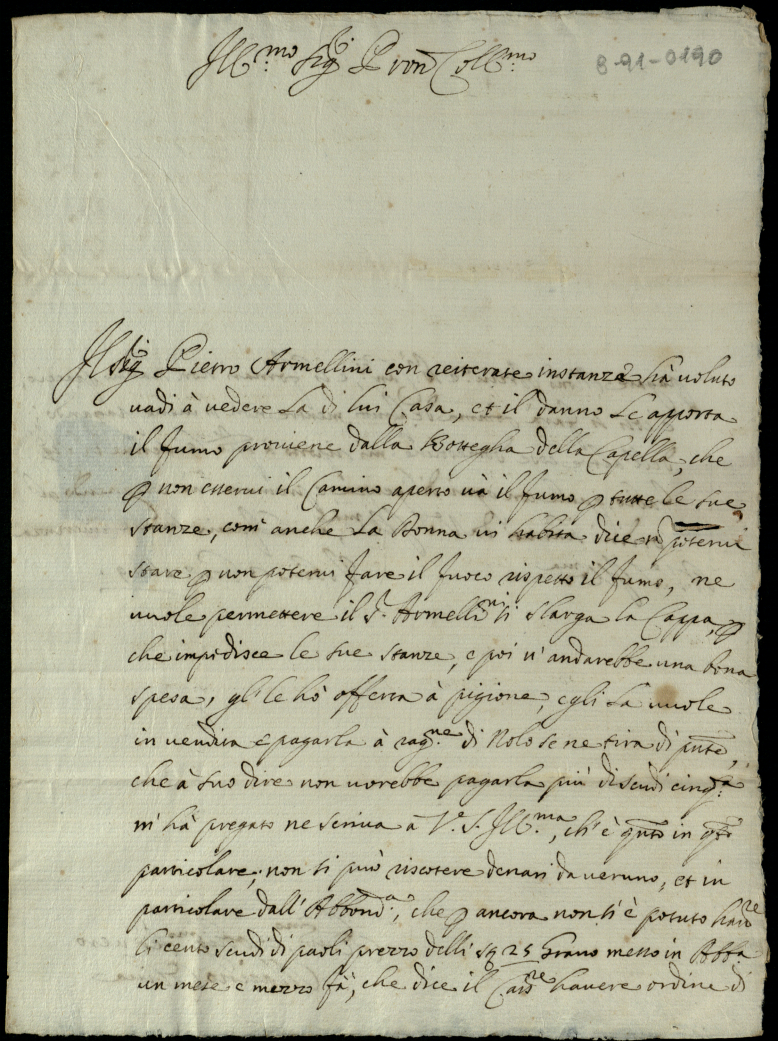 Ill:mo Sig.r Pron Coll:mo
8-91-0190
Il Sig.r Pietro Armellini con reiterate instanze hà voluto
vadi à vedere la di lui Casa, et il danno le apporta
il fumo proviene dalla Bottegha della Capella, che
p non esservi il Camino aperto và il fumo p tutte le sue
stanze, com'anche la Donna vi habita dice n potervi
stare p non potervi fare il fuoco rispetto il fumo, ne
vuole permettere il S.r Armellini si slarga la Cappa, p
che impedisce le sue stanze, e poi v'andarebbe una bona
spesa, gl'le hò offerta à pigione, egli la vuole
in vendita e pagarla à rag:ne di Nolo se ne tira di pnte,
che à suo dire non vorebbe pagarla più di scudi cinq:ta
m'hà pregato ne scriva à V.S. Ill:ma, ch'è qnto in qto
particolare; non si può riscotere denari da veruno, et in
particolare dall'Abbond:a, che p ancora non si è potuto haver
li cento scudi di paoli prezzo delli 25 Grano messo in Abba
un mese e mezzo fà, che dice il havere ordine di